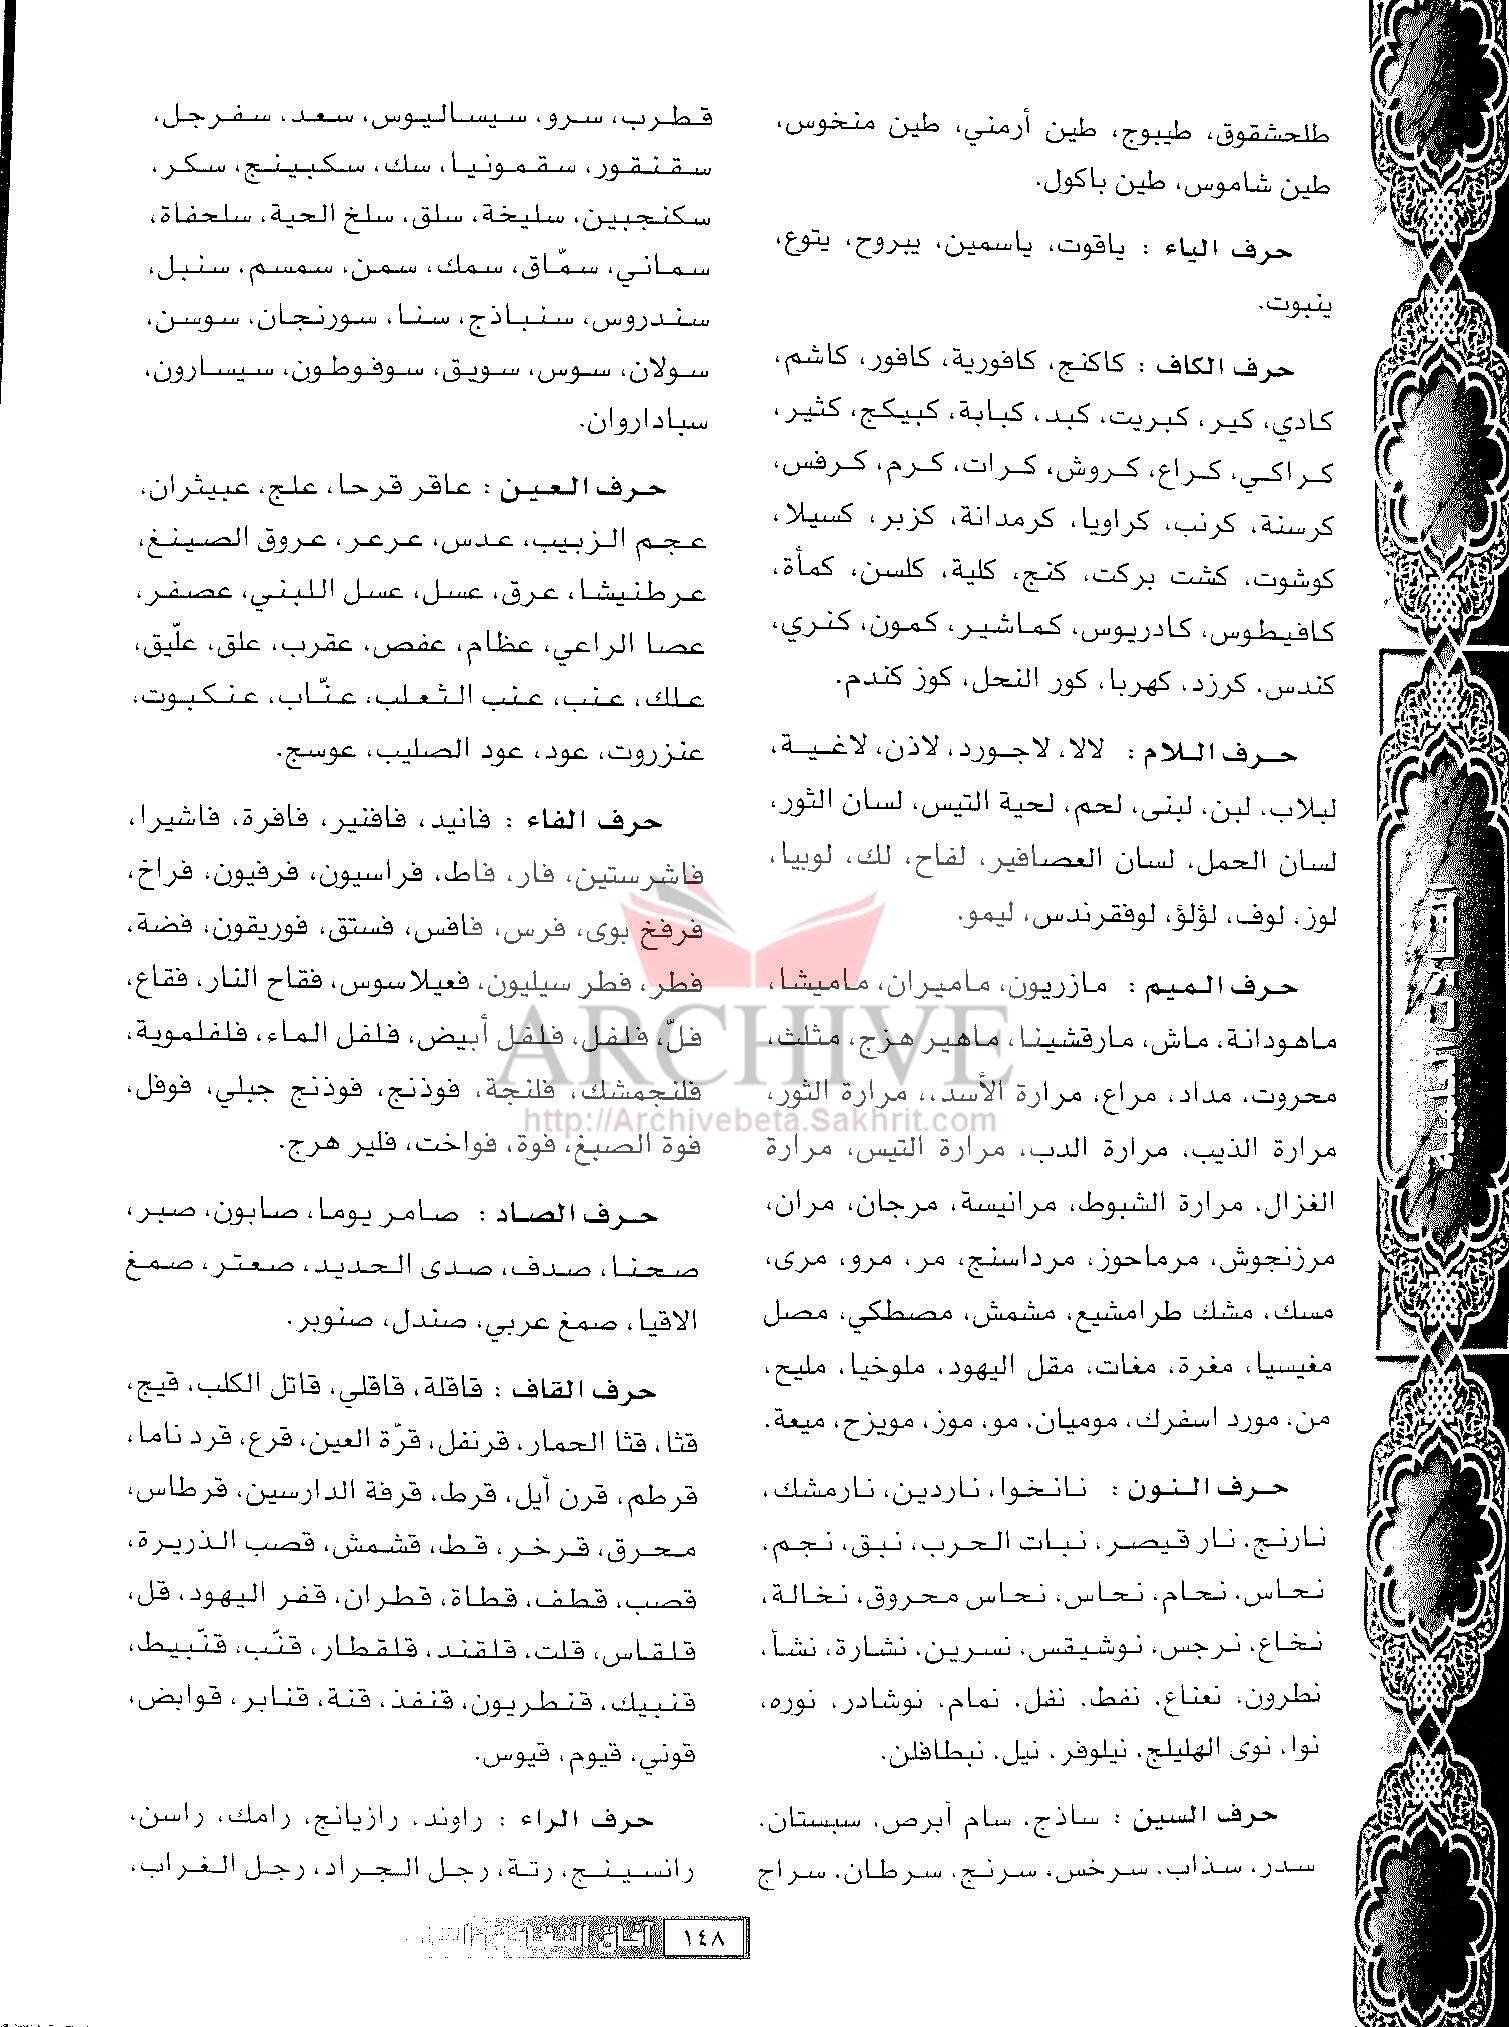 طلحشقوق، طيبوج، طين أرمني، طين منخوس،
طين شاموس، طين باكول.
حرف الياء : ياقوت، ياسمين، يبروح، يتوع،
ينبوت.
حرف الكاف : كاكنج، كافورية، كافور، كاشم،
كادي، كير، كبريت، كبد، كبابة، كبيكج، كثير،
كراكي، كراع، كروش، كرات، كرم، كرفس،
كرسنة، كرنب، كراويا، كرمدانة، كزبر، كسيلا،
كوشوت، كشت بركت، كنج، كلية، كلسن، كمأة،
كافيطوس، كادريوس، كماشير، كمون، كنري،
كندس، كرزد، كهربا، كور النحل، كوز كندم.
حرف اللام : لالا، لاجورد، لاذن، لاغية،
لبلاب، لبن، لبنى، لحم، لحية التيس، لسان الثور،
لسان الحمل، لسان العصافير، لفاح، لك، لوبيا،
لوز، لوف، لؤلؤ، لوفقرندس، ليمو.
حرف الميم : مازريون، ماميران، ماميشا،
ماهودانة، ماش، مارقشينا، ماهير هزج، مثلث،
محروت، مداد، مراع، مرارة الأسد،، مرارة الثور،
مرارة الذيب، مرارة الدب، مرارة التيس، مرارة
الغزال، مرارة الشبوط، مرانيسة، مرجان، مران،
مرزنجوش، مرماحوز، مرداسنج، مر، مرو، مرى،
مسك، مشك طرامشيع، مشمش، مصطكي، مصل
مغيسيا، مغرة، مغات، مقل اليهود، ملوخيا، مليح،
من، مورد اسفرك، موميان، مو، موز، مويزح، ميعة.
حرف النون : نانخوا، ناردين، نارمشك،
نارنج، نار قيصر، نبات الحرب، نبق، نجم،
نحاس، نحام، نحاس، نحاس محروق، نخالة،
نخاع، نرجس، نوشيقس، نسرين، نشارة، نشأ،
نطرون، نعناع، نفط، نفل، نمام، نوشادر، نوره،
نوا، نوى الهليلج، نيلوفر، نيل، نبطافلن.
حرف السين : ساذج، سام أبرص، سبستان،
سدر، سذاب، سرخس، سرنج، سرطان، سراج
قطرب، سرو، سيساليوس، سعد، سفرجل،
سقنقور، سقمونيا، سك، سكبينج، سكر،
سكنجبين، سليخة، سلق، سلخ الحية، سلحفاة،
سماني، سمّاق، سمك، سمن، سمسم، سنبل،
سندروس، سنباذج، سنا، سورنجان، سوسن،
سولان، سوس، سويق، سوفوطون، سيسارون،
سباداروان.
حرف العين : عاقر قرحا، علج، عبيثران،
عجم الزبيب، عدس، عرعر، عروق الصينغ،
عرطنيشا، عرق، عسل، عسل اللبني، عصفر،
عصا الراعي، عظام، عفص، عقرب، علق، علّيق،
علك، عنب، عنب الثعلب، عنّاب، عنكبوت،
عنزروت، عود، عود الصليب، عوسج.
حرف الفاء : فانيد، فافتير، فافرة، فاشيرا،
فاشرستين، فار، فاط، فراسيون، فرفيون، فراخ،
فرفخ بوى، فرس، فافس، فستق، فوريقون، فضة،
فطر، فطر سيليون، فعيلاسوس، فقاح النار، فقاع،
فلّ، فلفل، فلفل أبيض، فلفل الماء، فلفلموية،
فلنجمشك، فلنجة، فوذنج، فوذنج جبلي، فوفل،
فوة الصبغ، فوة، فواخت، فلير هرج.
حرف الصاد : صامر يوما، صابون، صبر،
صحنا، صدف، صدى الحديد، صعتر، صمغ
الاقيا، صمغ عربي، صندل، صنوبر.
حرف القاف : قاقلة، قاقلي، قاتل الكلب، قيج،
قثا، قثا الحمار، قرنفل، قرّة العين، قرع، قرد ناما،
قرطم، قرن أيل، قرط، قرفة الدارسين، قرطاس،
محرق، قرخر، قط، قشمش، قصب الذريرة،
قصب، قطف، قطاة، قطران، قفر اليهود، قل،
قلقاس، قلت، قلقند، قلقطار، قنّب، قنّبيط،
قنبيك، قنطريون، قنفذ، قنة، قنابر، قوابض،
قوني، قيوم، قيوس.
حرف الراء : راوند، رازيانج، رامك، راسن،
رانسينج، رتة، رجل الجراد، رجل الغراب،
ARCHIVE
http://Archivebeta.Sakhrit.com
١٤٨